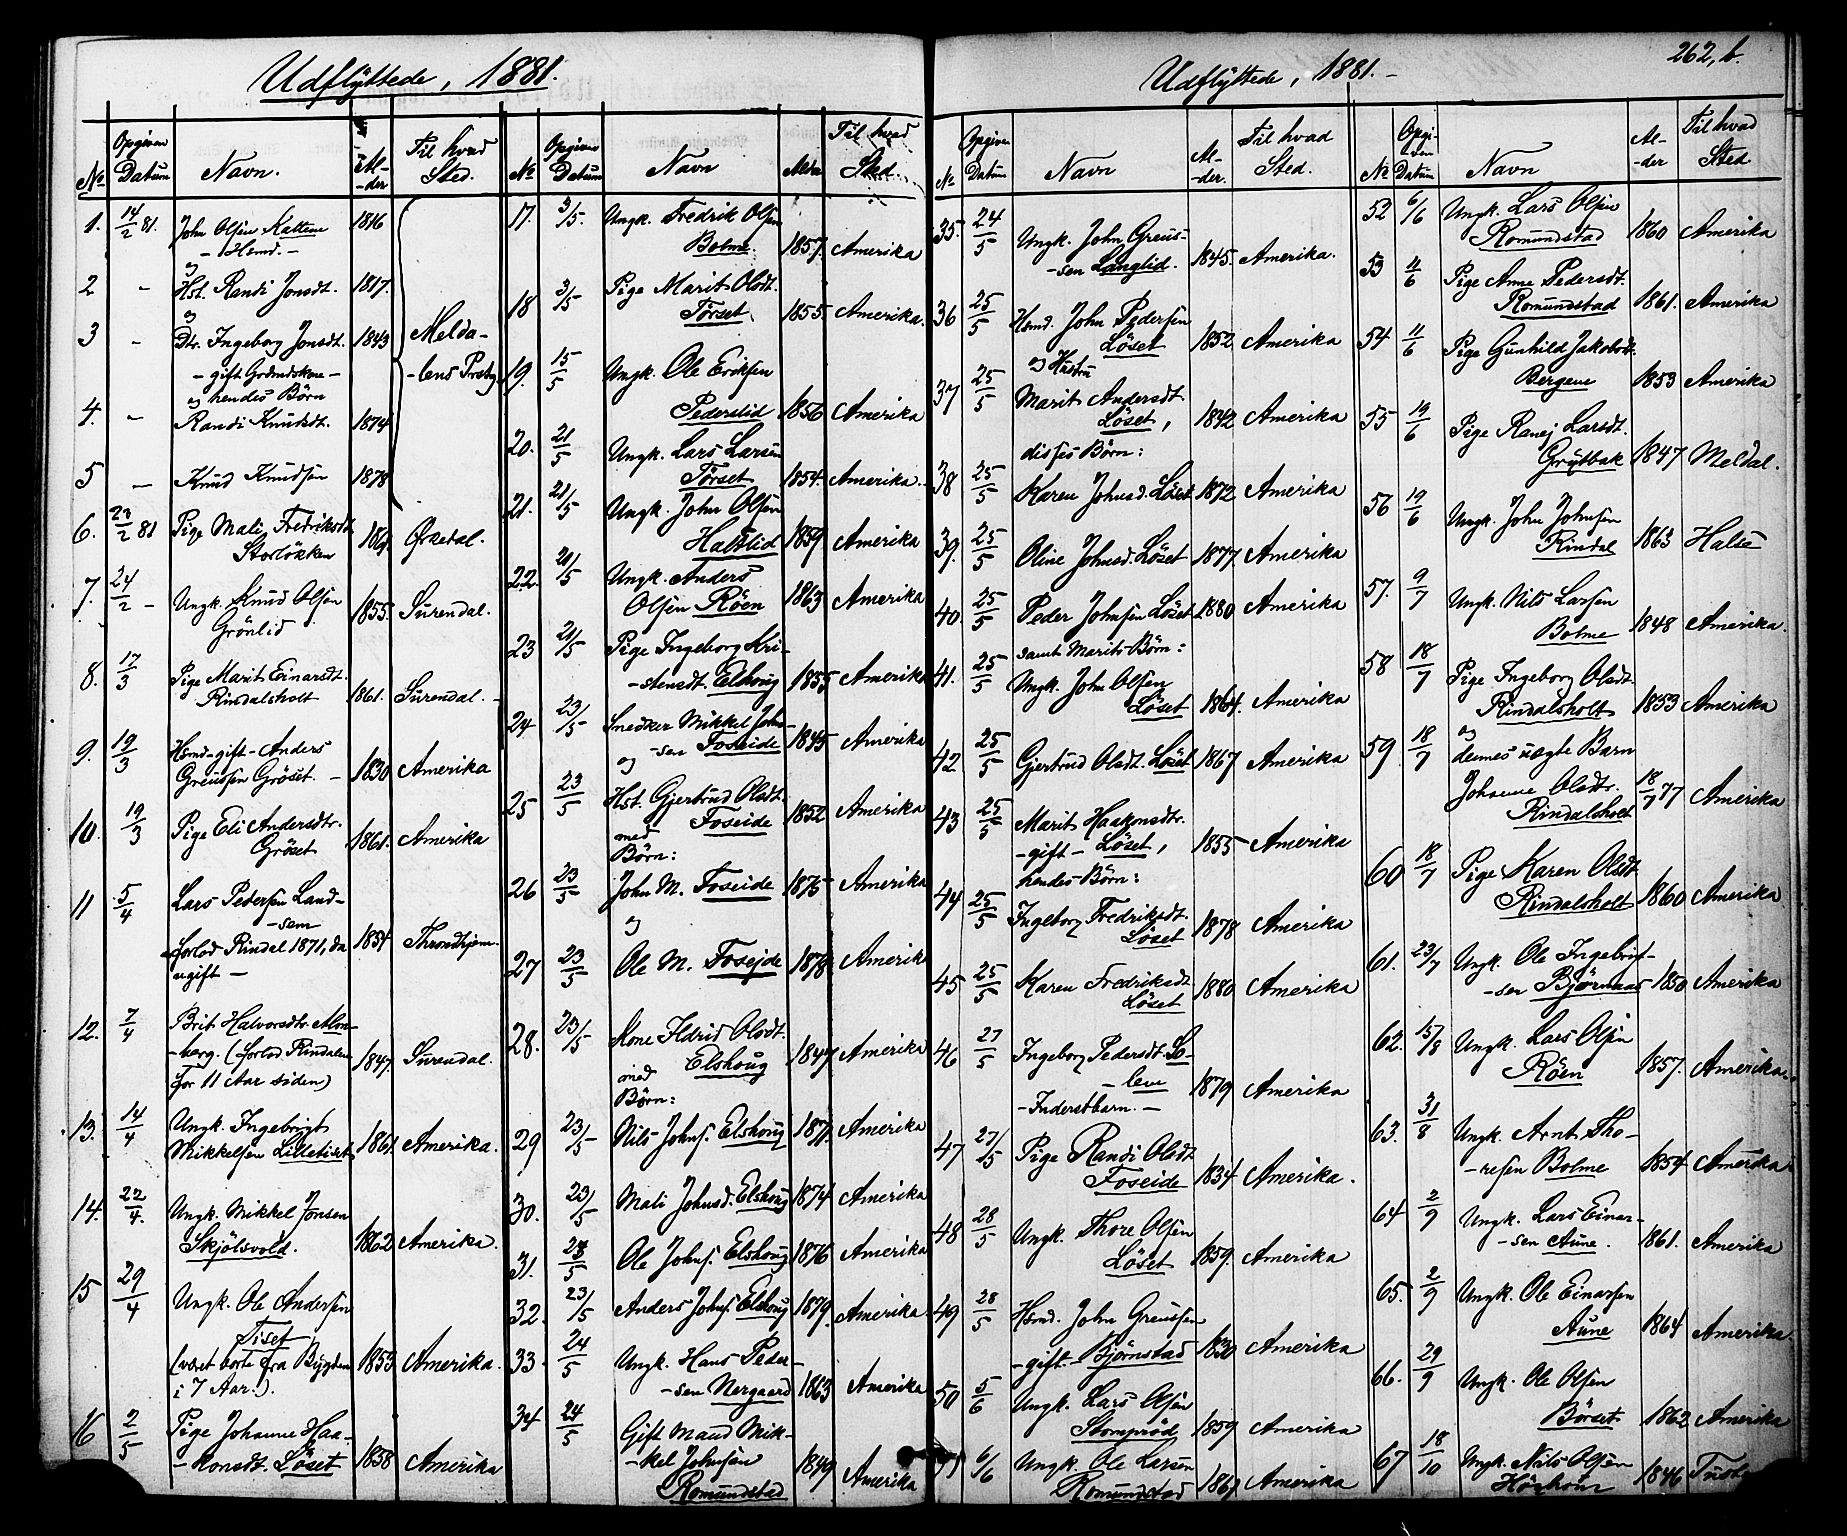 262, b.
Udflyttede, 1881.
No Opgiven Datum Navn. Al-der Til hvad Sted.
1. 14/2 81. John Olsen Kattem 1816
- Hsmd. -
og
2 - Hst. Randi Jonsdt. 1817.
og
3 - Dtr. Ingeborg Jonsdt. 1843 Melda-
- gift Grdmdskone - -lens Prstgj.
og hendes Børn
4. - Randi Knudsdt. 1874
5 - Knud Knudsen 1878
6. 22/2 81 Pige Mali Fredriksdt.
Storløkken Ørkedal.
7. 24/2 - Ungk. Knud Olsen
Grönlid 1855. Surendal.
8. 17/3 Pige Marit Einarsdt.
Rindalsholt 1861. Surendal.
9. 19/3 Hsmd-gift-Anders
Greussen Gröset. - 1830 Amerika
10. 19/3 Pige Eli Andersdtr.
Gröset 1861. Amerika
11 5/4 Lars Pedersen Land-
-sem
forlod Rindal 1871, da 1854 Throndhjem.
ugift -
12. 7/4 Brit Halvorsdtr. Alm-
-berg. (forlod Rindalen 1847. Surendal.
for 11 Aar siden)
13. 14/4 Ungk. Ingebrigt
Mikkelsen Lilletiset 1861. Amerika.
14. 22/4. Ungk. Mikkel Jonsen
Skjölsvold. 1862 Amerika.
15 29/4 Ungk. Ole Andersen
Tiset
(været borte fra Bygden 1853 Amerika.
i 7 Aar.)
16 2/5 Pige Johanne Haa-
-konsdt. Löset 1858 Amerika
No Opgiven Datum Navn Alder Til hvad Sted.
17. 3/5. Ungk. Fredrik Olsen
Bolme. 1857. Amerika
18 3/5 Pige Marit Olsdt.
Törset 1855. Amerika.
19. 15/5 Ungk. Ole Eriksen
Pederslid 1856 Amerika
20. 21/5 Ungk. Lars Larsen
Törset 1854. Amerika.
21. 21/5 Ungk. John Olsen
Halslid 1859 Amerika
22. 21/5 Ungk. Anders
Olsen Röen 1863 Amerika
23 21/5 Pige Ingeborg Kri-
-stensdt. Elshoug 1855 Amerika
24 23/5 Snedker Mikkel John-
-sen Foseide 1845 Amerika
og
25 23/5 Hst. Gjertrud Olsdt.
Foseide 1852 Amerika
med
Börn:
26 23/5 John M. Foseide 1875 Amerika
og
27 23/5 Ole M. Foseide 1878. Amerik
28. 23/5 Kone Ildrid Olsdt.
Elshoug 1847 Amerika
med
Börn:
29 23/5 Nils Johns. Elshoug 1871. Amerika
30. 23/5 Mali Johnsd. Elshoug 1874 Amerika
31. 23/5 Ole Johns. Elshoug 1876 Amerika
32. 23/5 Anders Johns. Elshoug 1879. Amerika.
33. 24/5 Ungk. Hans Peder-
-sen Nergaard 1863 Amerika
34 24/5 Gift Mand Mik-
-kel Johnsen 1849 Amerika
Romundstad
Udflyttede, 1881. -
No Opgiven Datum Navn Al-der. Til hvad Sted.
35. 24/5 Ungk. John Greus-
-sen Langlid. 1845. Amerika.
36 25/5 Hsmd. John Pedersen
Löset 1852 Amerika
og Hustru
37 25/5 Marit Andersdt.
Löset, 1842 Amerika
disses Börn:
38 25/5 Karen Johnsd. Löset 1872 Amerika
39. 25/5 Oline Johnsd. Löset 1877. Amerika
40. 25/5 Peder Johnsen Löset 1880 Amerika
samt Marits Börn:
41. 25/5 Ungk. John Olsen
Löset 1864. Amerika
42. 25/5 Gjertrud Olsdt. Löset 1867 Amerika
43 25/5 Marit Haakonsdtr.
-gift- Löset, 1855 Amerika
hendes Börn:
44 25/5 Ingeborg Fredriksdt.
Löset 1878 Amerika
45 25/5 Karen Fredriksdt.
Löset 1880 Amerika
46 27/5 Ingeborg Pedersdt. So-
-lem 1879 Amerika
- Inderstbarn. -
47 27/5 Pige Randi Olsdt.
Foseide 1834 Amerika.
48 28/5 Ungk. Thore Olsen
Löset 1859. Amerika
49 28/5 Hsmd. John Greussen
-gift- Björnstad 1830 Amerika
50 5/6 Ungk. Lars Olsen
Stomprød 1859 Amerika
51 6/6 Ungk. Ole Larsen
Romundstad Amerika
No Opgi-ven Datum Navn Al-der Til hvad Sted.
52 6/6 Ungk. Lars Olsen
Romundstad 1860 Amerika
53 11/6 Pige Anne Pedersdt.
Romundstad 1861. Amerika
54 11/6 Pige Gunhild Jakobsdt.
Bergem 1853 Amerika
55 19/6 Pige Ranej Larsdt.
Grytbak 1847 Meldal.
56 19/6 Ungk. John Johnsen
Rindal 1863 Halse
57. 9/7 Ungk. Nils Larsen
Bolme 1848 Amerika.
58 18/7 Pige Ingeborg Olsdt.
Rindalsholt 1853 Amerika
og
59. 18/7 dennes uægte Barn
Johanne Olsdtr. 18/7 77 Amerika
Rindalsholt
60 18/7 Pige Karen Olsdt.
Rindalsholt 1860 Amerika
61. 23/7 Ungk. Ole Ingebrigt-
-sen Björnaas 1850 Amerika
62. 15/8 Ungk. Lars Olsen
Röen 1857. Amerika.
63. 31/8 Ungk. Arnt Tho-
-resen Bolme 1854 Amerika
64 2/9 Ungk. Lars Einar-
-sen Aune. 1861. Amerika
65. 2/9 Ungk. Ole Einarsen
Aune 1864 Amerika.
66. 29/9 Ungk. Ole Olsen
Börset. 1862 Amerika
67 18/10 Ungk. Nils Olsen 1846